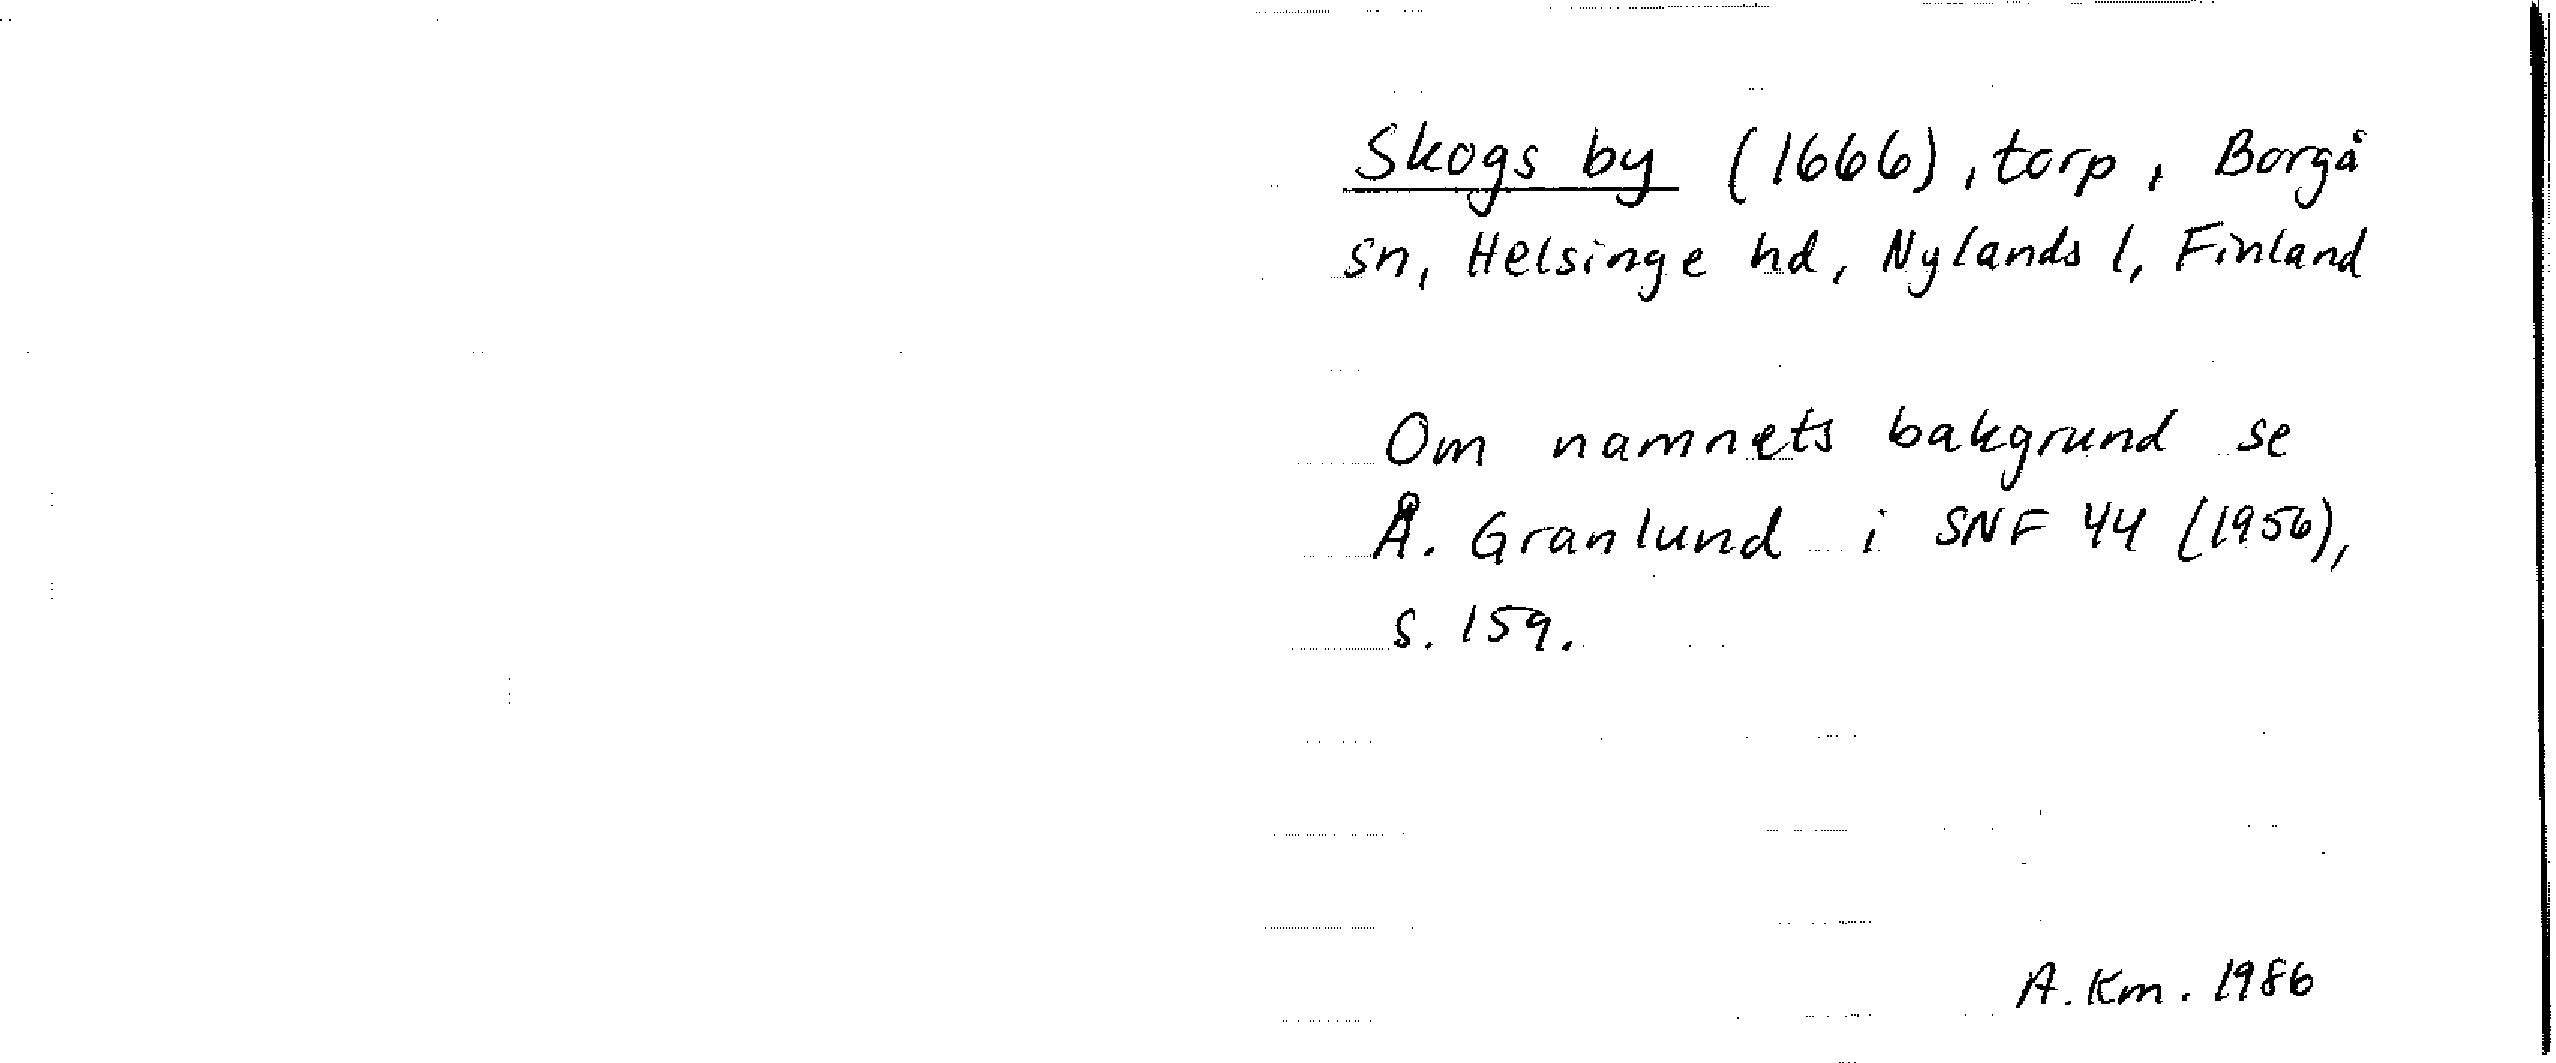 Skogs by (1666), torp, Borgå
sn, Helsinge hd, Nylands l, Finland
Om namnets bakgrund se
Å. Granlund i SNF 44 (1956),
s. 159.
A. Km. 1986